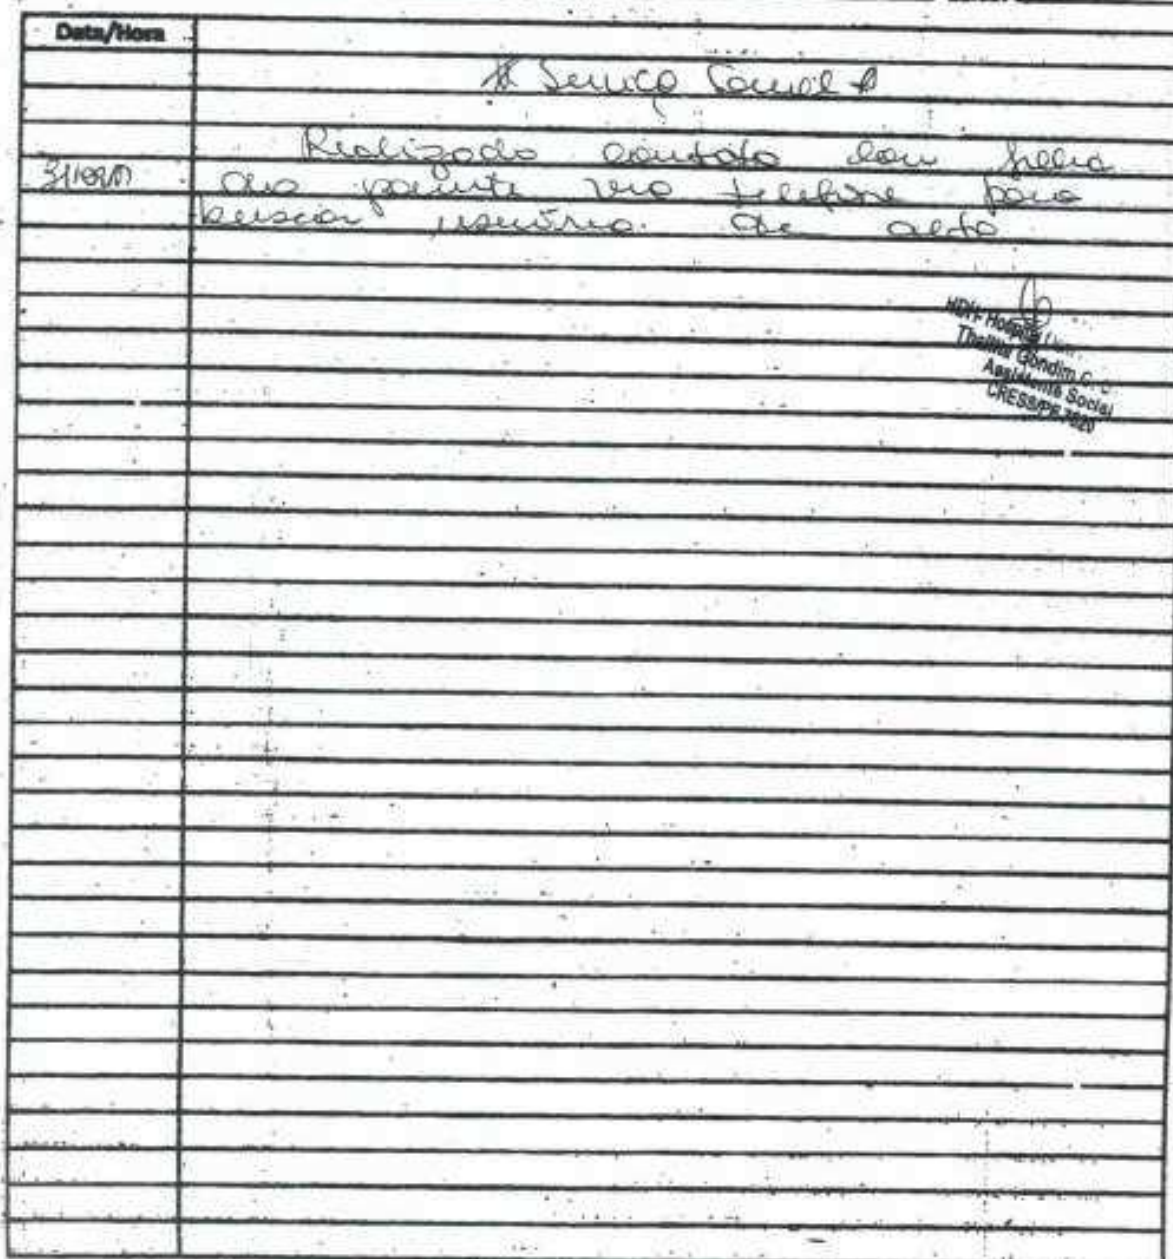 Data/Hora
# Serviço Social #
Realizado contato com filha
da paciente via telefone para
buscar usuária de alta
Hospital
Gondim C.
Assistente Social
CRESS/PE